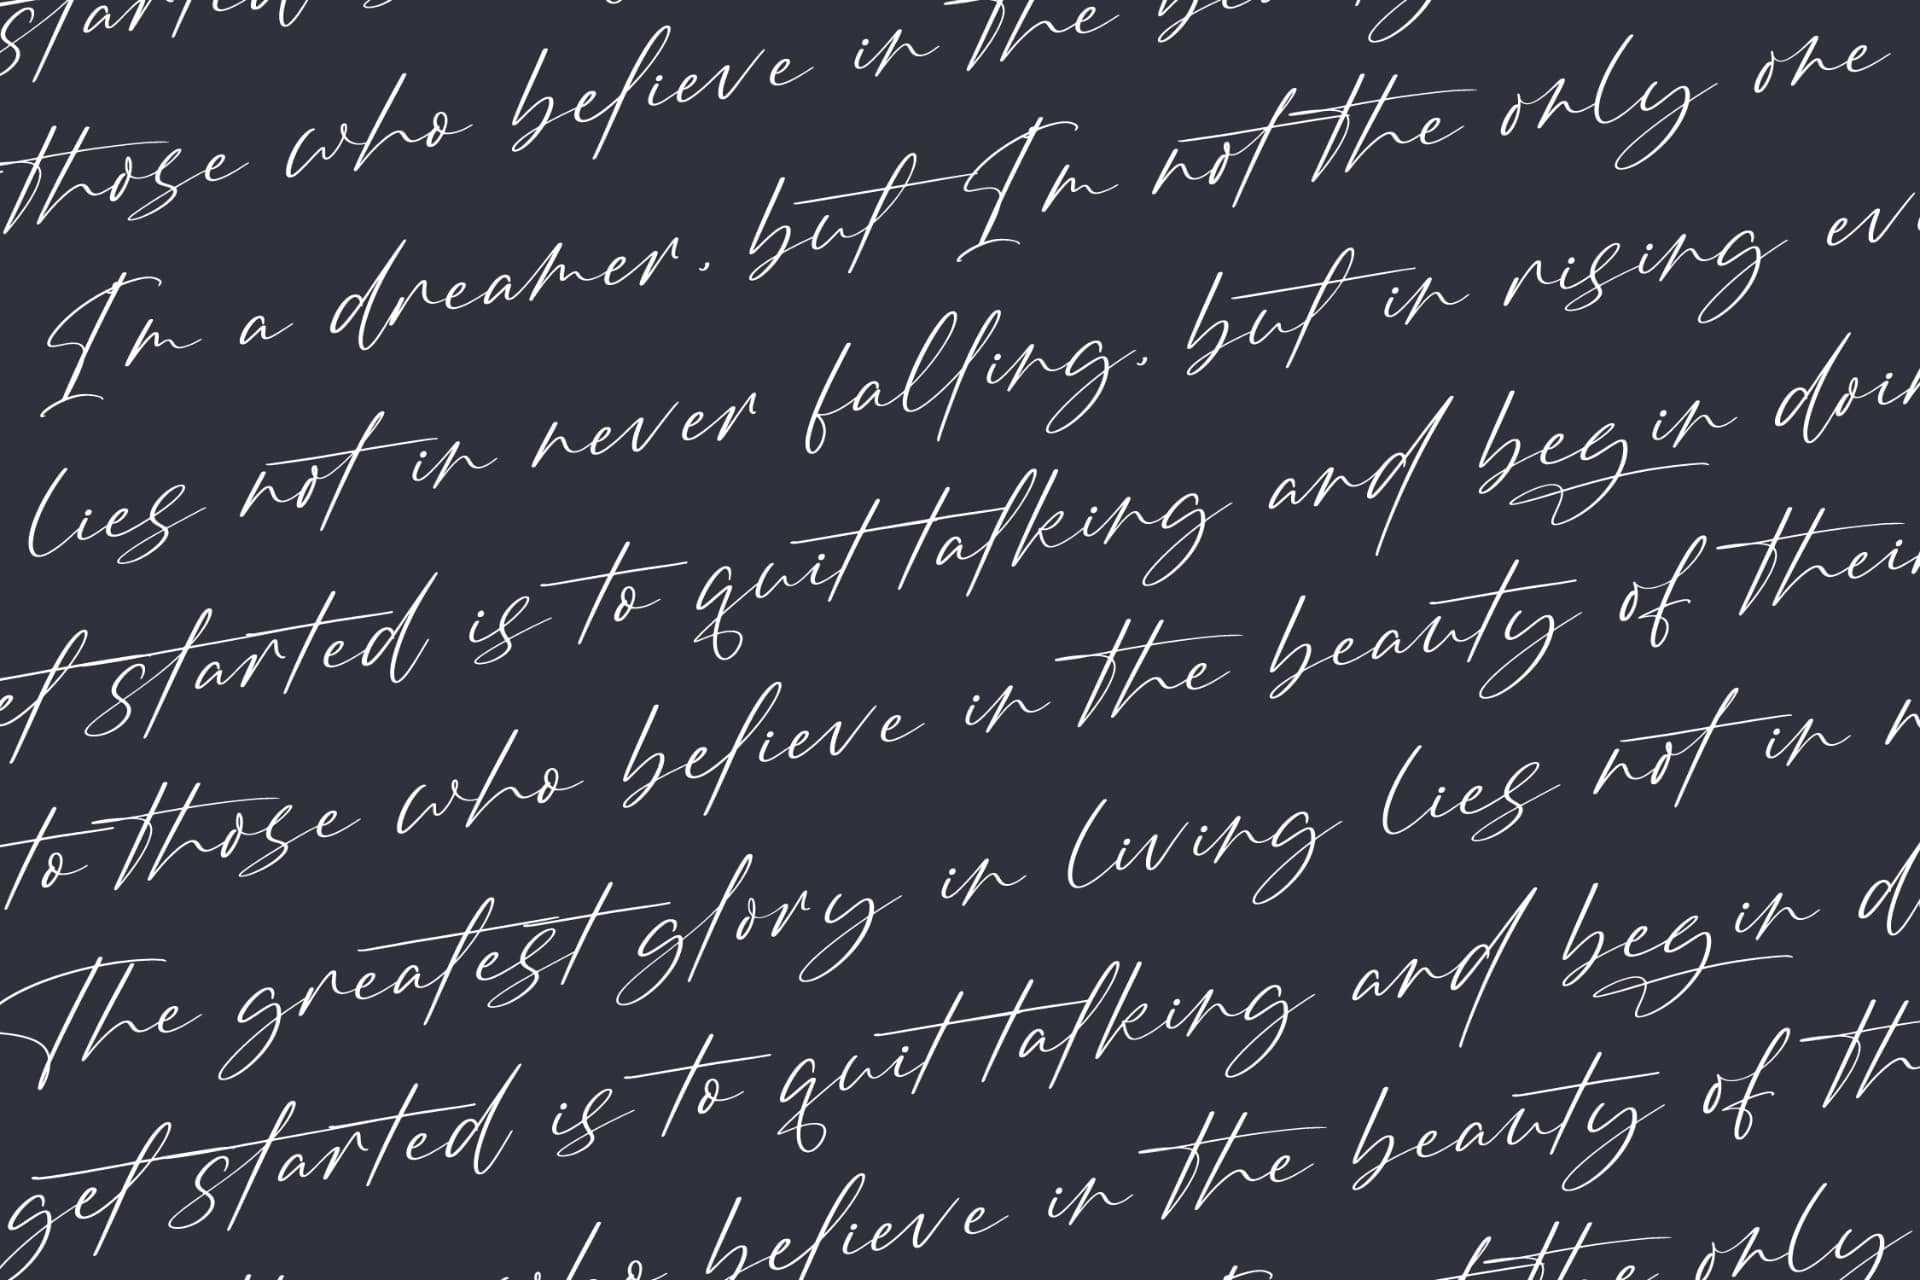 started
those who believe in the
Im a dreamer, but Im not the only one
lies not in never falling, but in rising
get started is to quit talking and begin
to those who believe in the beauty of their
The greatest glory in living lies not in
get started is to quit talking and begin
who believe in the beauty of
the only